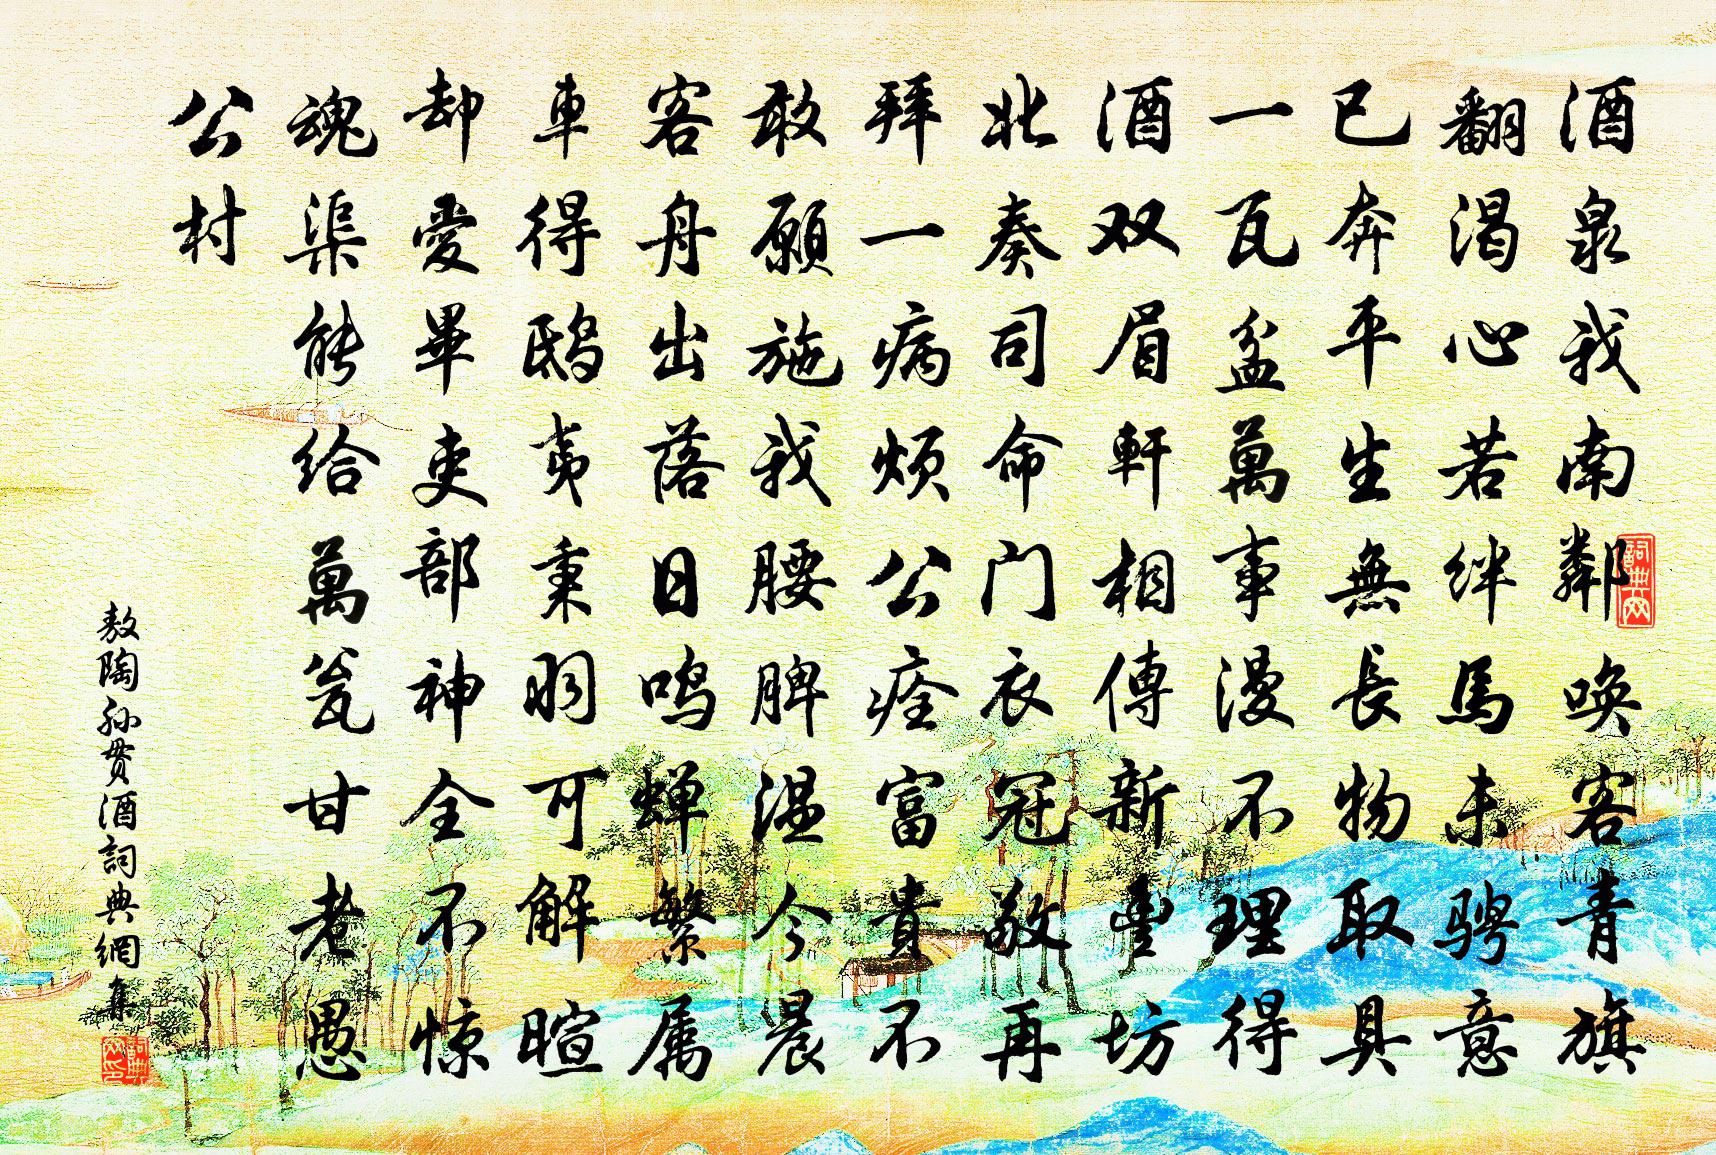 酒泉我南鄰唤客青旗
翻渴心若绊馬未骋意
已奔平生無長物取具
一瓦盆萬事漫不理得
酒双眉軒相傳新豐坊
北奏司命门衣冠敬再
拜一病烦公痊富貴不
敢願施我腰脾温今晨
客舟出落日鸣蝉繁属
車得鸱夷秉羽可解暄
却愛畢吏部神全不惊
魂渠能给萬瓮甘老愚
公村
敖陶孙贳酒詞典網集
詞典网